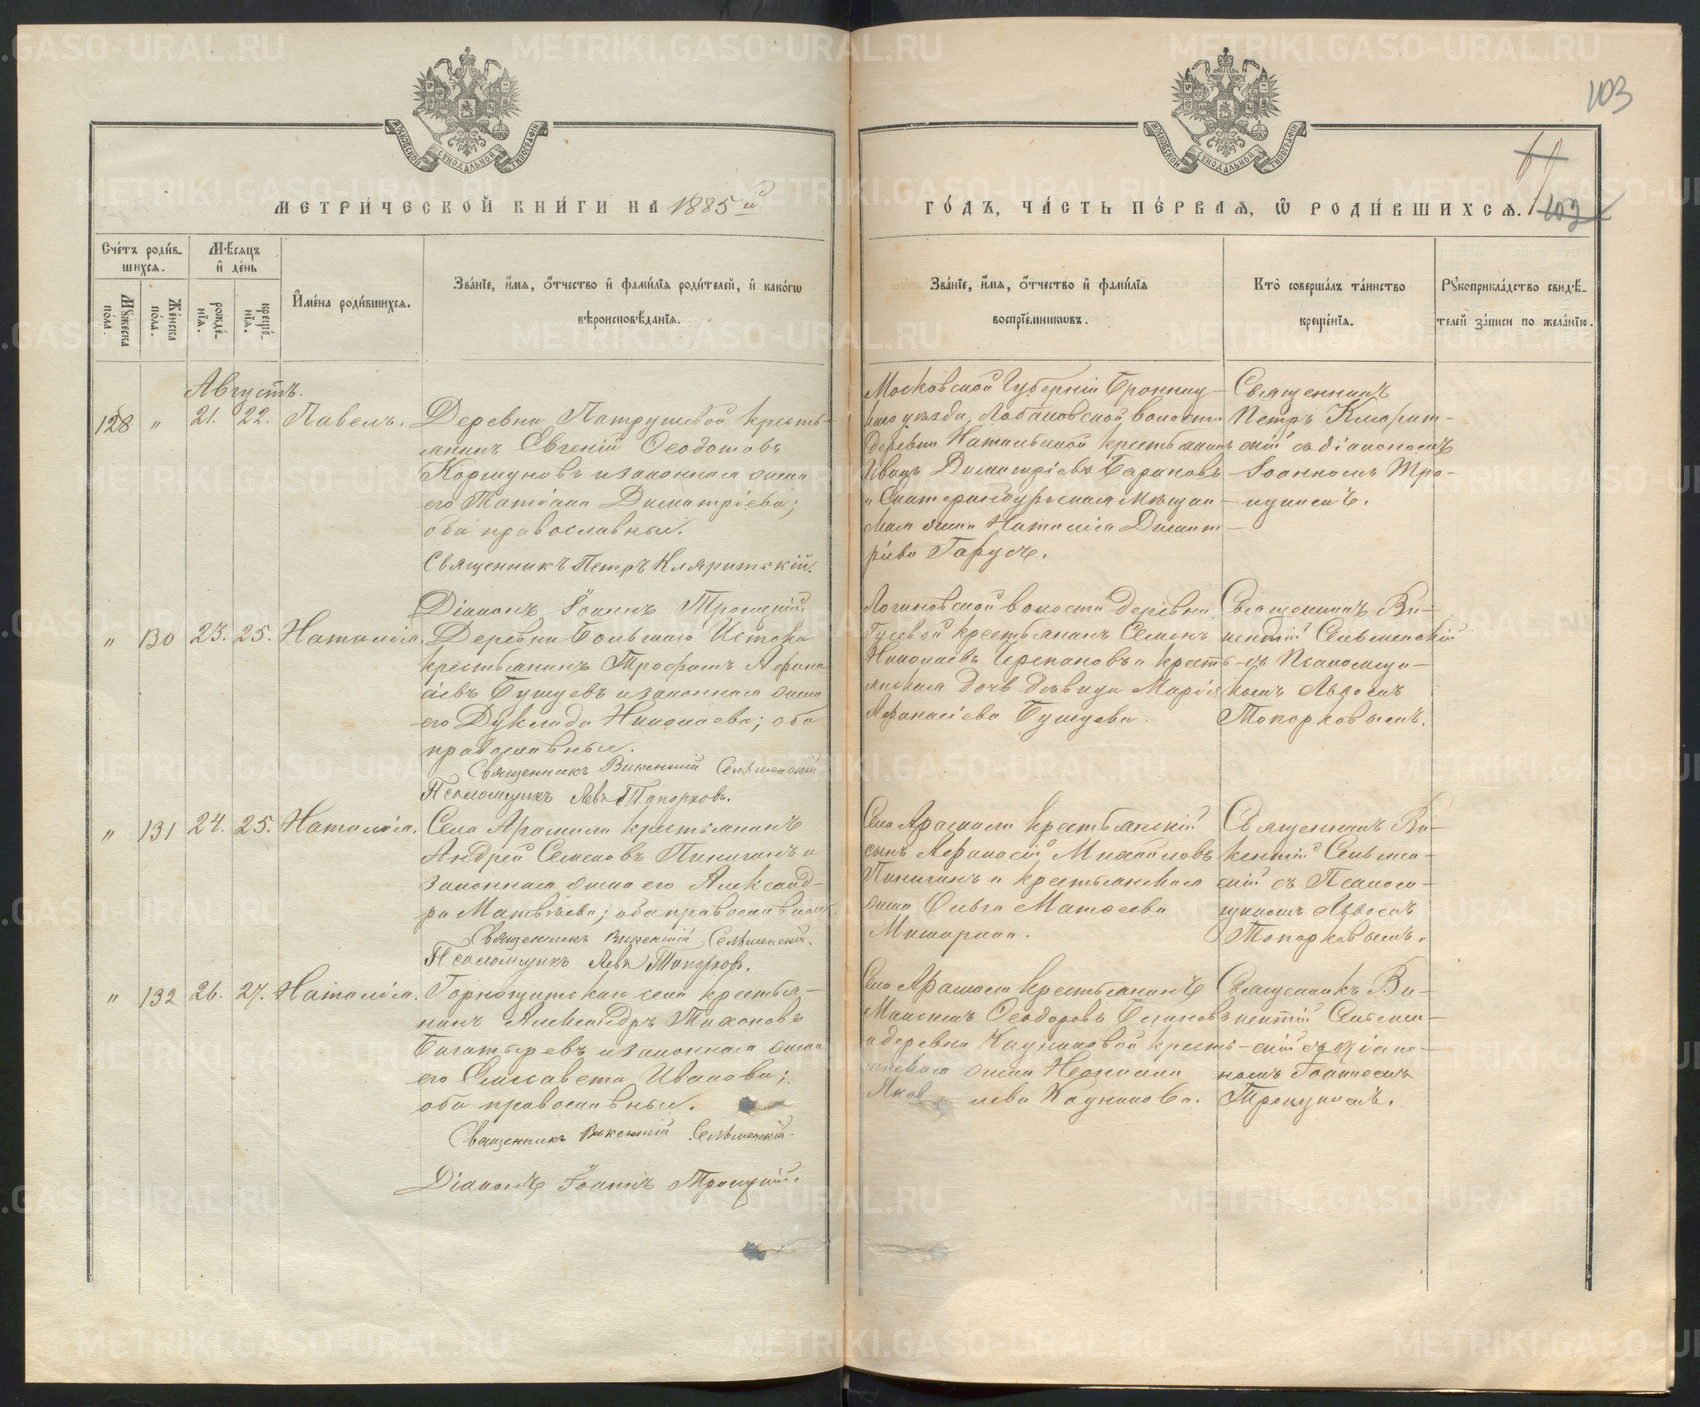 103
61
102
МЕТРИ́ЧЕСКОЙ КНИ́ГИ НА 1885 й
ГО́ДЪ, ЧА́СТЬ ПЕ́РВАЯ, Ѡ РОДИ́ВШИХСЯ.
Сче́тъ роди́в-
шихся.
Мѣ́сяцъ
и де́нь
Мꙋ́жеска
по́ла.
Же́нска
по́ла.
рожде́-
нїя.
креще́-
нїя.
Имена̀ роди́вшихся.
Зва́нїе, и́мя, ѻ́тчество и фами́лїя роди́телей, и како́гѡ
вѣроисповѣ́данїя.
Зва́нїе, и́мя, ѻ́тчество и фами́лїя
воспрїе́мникѡвъ.
Кто̀ соверша́лъ та́инство
креще́нїя.
Рꙋкоприкла́дство свидѣ́-
телей за́писи по жела́нїю.
Августъ.
128 " 21. 22. Павелъ.
Деревни Патрушевой кресть-
янинъ Евгеній Ѳеодотовъ
Коршуновъ и законная жена
его Татіана Димитріева;
оба православные.
Священникъ Петръ Кляритскій.
Діаконъ Іоаннъ Троицкій.
Московской Губерніи Бронниц-
каго уѣзда, Лобановской волости
деревни Натальиной крестьянинъ
Иванъ Димитріевъ Бариновъ
и Екатеринбургская Мѣщан-
ская жена Наталія Димит-
ріева Гарусъ.
Священникъ
Петръ Кларит-
скій съ діакономъ
Іоанномъ Тро-
ицкимъ.
" 130 23. 25. Наталія.
Деревни Большаго Истока
крестьянинъ Трофимъ Афана-
сіевъ Бушуевъ и законная жена
его Дуклида Николаева; оба
православные.
Священникъ Викентій Сельменскій
Псаломщикъ Левъ Топорковъ.
Логиновской волости деревни
Гусевой крестьянинъ Семенъ
Николаевъ Черепановъ и кресть-
янская дочь дѣвица Марія
Афанасіева Бушуева.
Священникъ Ви-
кентій Сельменскій
съ Псаломщи-
комъ Львомъ
Топорковымъ.
" 131 24. 25. Наталія.
Села Арамили крестьянинъ
Андрей Семеновъ Пинигинъ и
законная жена его Александ-
ра Матвѣева; оба православные.
Священникъ Викентій Сельменскій.
Псаломщикъ Левъ Топорковъ.
Села Арамили крестьянскій
сынъ Афанасій Михайловъ
Пинигинъ и крестьянская
жена Ольга Матвеева
Священникъ Ви-
кентій Сельмен-
скій съ Псалом-
щикомъ Львомъ
Топорковымъ.
" 132 26. 27. Наталія.
Горнощитскаго села крестья-
нинъ Александръ Тихоновъ
Багатыревъ и законная жена
его Елисавета Иванова;
оба православные.
Священникъ Викентій Сельменскій.
Діаконъ Іоаннъ Троицкій.
Села Арамили крестьянинъ
Максимъ Ѳеодоровъ
и деревни Кадниковой кресть-
янская жена Неонила
Яковлева Кадникова.
Священникъ Ви-
кентій Сельмен-
скій съ діако-
номъ Іоанномъ
Троицкимъ.